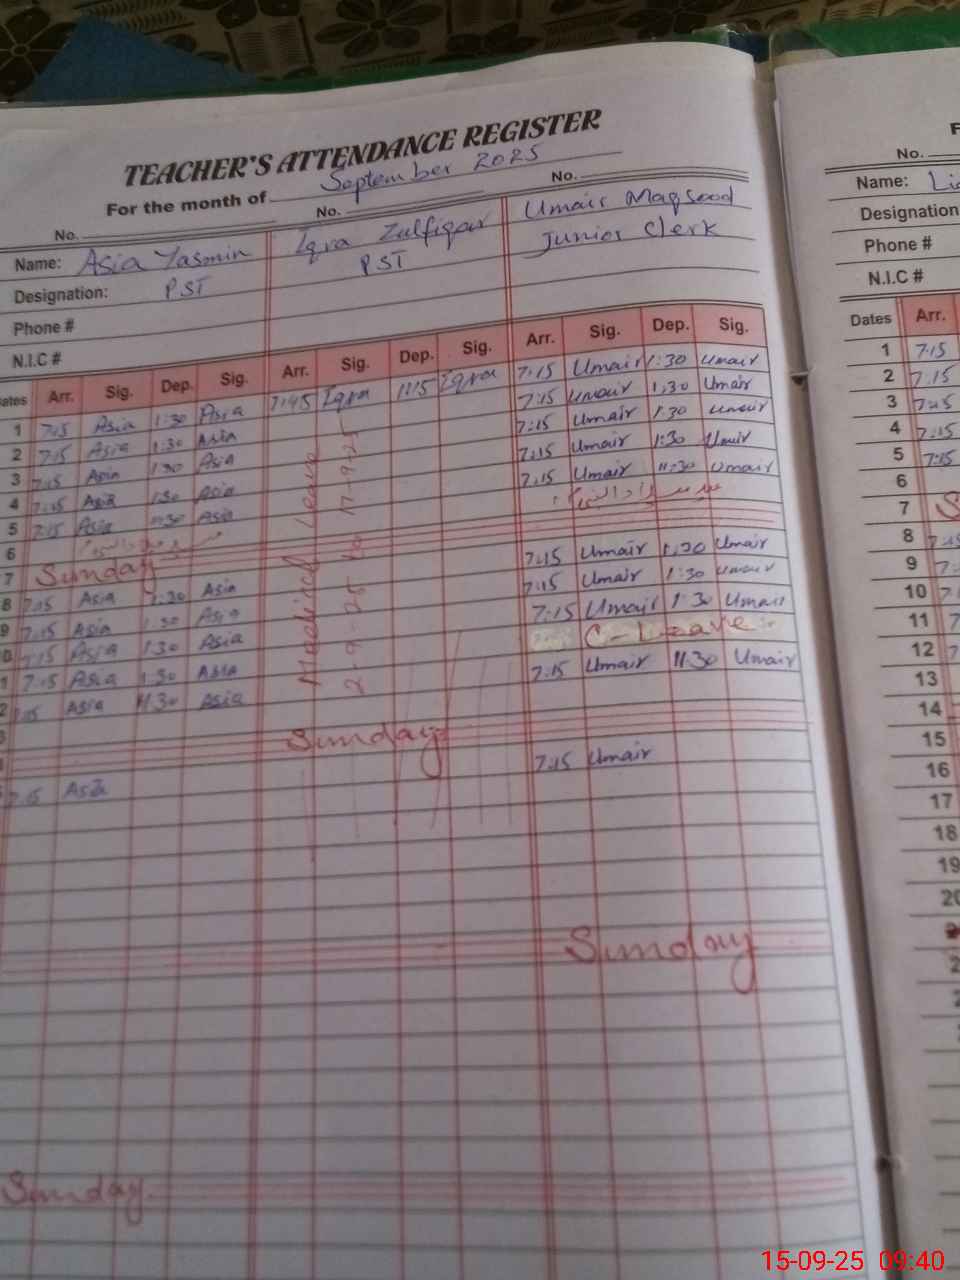 TEACHER'S ATTENDANCE REGISTER
For the month of September 2025
No. No. No.
Name: Asia Yasmin Iqra Zulfiqar Umair Maqsood
Designation: PST PST Junior Clerk
Phone #
N.I.C #
Dates Arr. Sig. Dep. Sig. Arr. Sig. Dep. Sig. Arr. Sig. Dep. Sig.
1 7:15 Asia 1:30 Asia 7:45 Iqra 1:15 Iqra 7:15 Umair 1:30 Umair
2 7:15 Asia 1:30 Asia 7:15 Umair 1:30 Umair
3 7:15 Asia 1:30 Asia 7:15 Umair 1:30 Umair
4 7:15 Asia 1:30 Asia 7:15 Umair 1:30 Umair
5 7:15 Asia 11:30 Asia 7:15 Umair 11:30 Umair
6
7 Sunday
8 7:15 Asia 1:30 Asia 7:15 Umair 1:30 Umair
9 7:15 Asia 1:30 Asia 7:15 Umair 1:30 Umair
0 7:15 Asia 1:30 Asia 7:15 Umair 1:30 Umair
1 7:15 Asia 1:30 Asia C-Leave
2 7:15 Asia 11:30 Asia 7:15 Umair 11:30 Umair
Medical Leave
2-9-25 to 17-9-25
Sunday
7:15 Asia 7:15 Umair
Sunday
Sunday
No.
Name:
Designation
Phone #
N.I.C #
Dates Arr.
1 7:15
2 7:15
3 7:15
4 7:15
5 7:15
6
7 S
8 7:15
9 7:
10 7
11 7
12 7
13
14
15
16
17
18
19
20
15-09-25 09:40